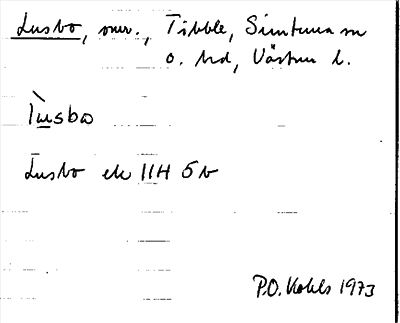 Lusbo, omr., Tibble, Simtuna sn
o. hd, Västm l.
lùsbω
Lusbo ek 11H 5b
P.O. Kohls 1973